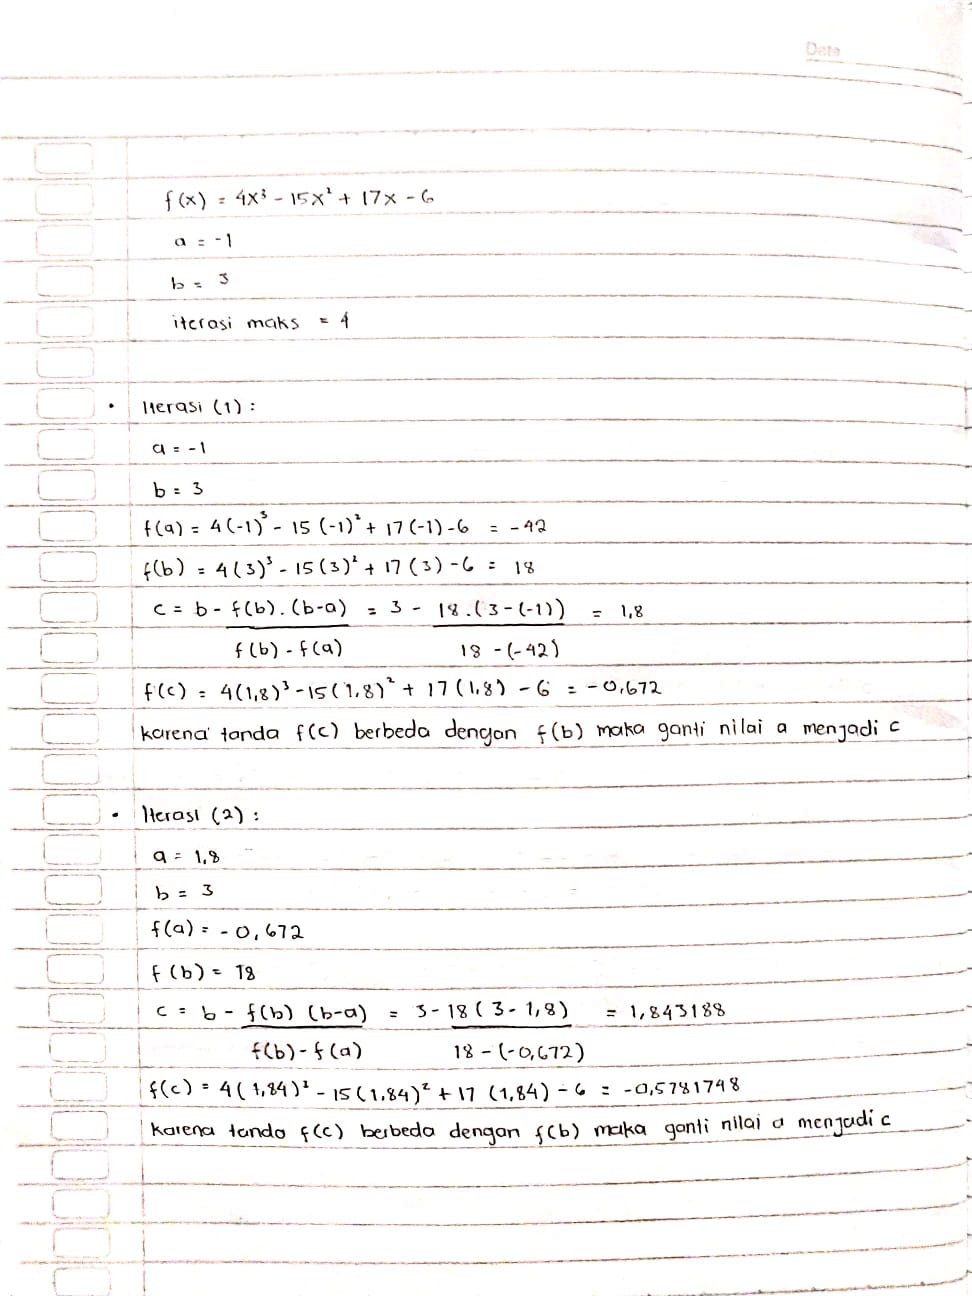 Date
f(x) = 4x³ - 15x² + 17x - 6
a = -1
b = 3
iterasi maks = 4
• Iterasi (1) :
a = -1
b = 3
f(a) = 4(-1)³ - 15 (-1)² + 17 (-1) - 6 = -42
f(b) = 4(3)³ - 15(3)² + 17 (3) - 6 = 18
c = b - f(b) . (b-a) = 3 - 18 . (3-(-1)) = 1,8
f(b) - f(a) 18 - (-42)
f(c) = 4(1,8)³ - 15(1,8)² + 17(1,8) - 6 = -0,672
karena tanda f(c) berbeda dengan f(b) maka ganti nilai a menjadi c
• Iterasi (2) :
a = 1,8
b = 3
f(a) = -0,672
f(b) = 18
c = b - f(b) (b-a) = 3 - 18 (3-1,8) = 1,843188
f(b) - f(a) 18 - (-0,672)
f(c) = 4(1,84)³ - 15(1,84)² + 17 (1,84) - 6 = -0,5781748
karena tanda f(c) berbeda dengan f(b) maka ganti nilai a menjadi c